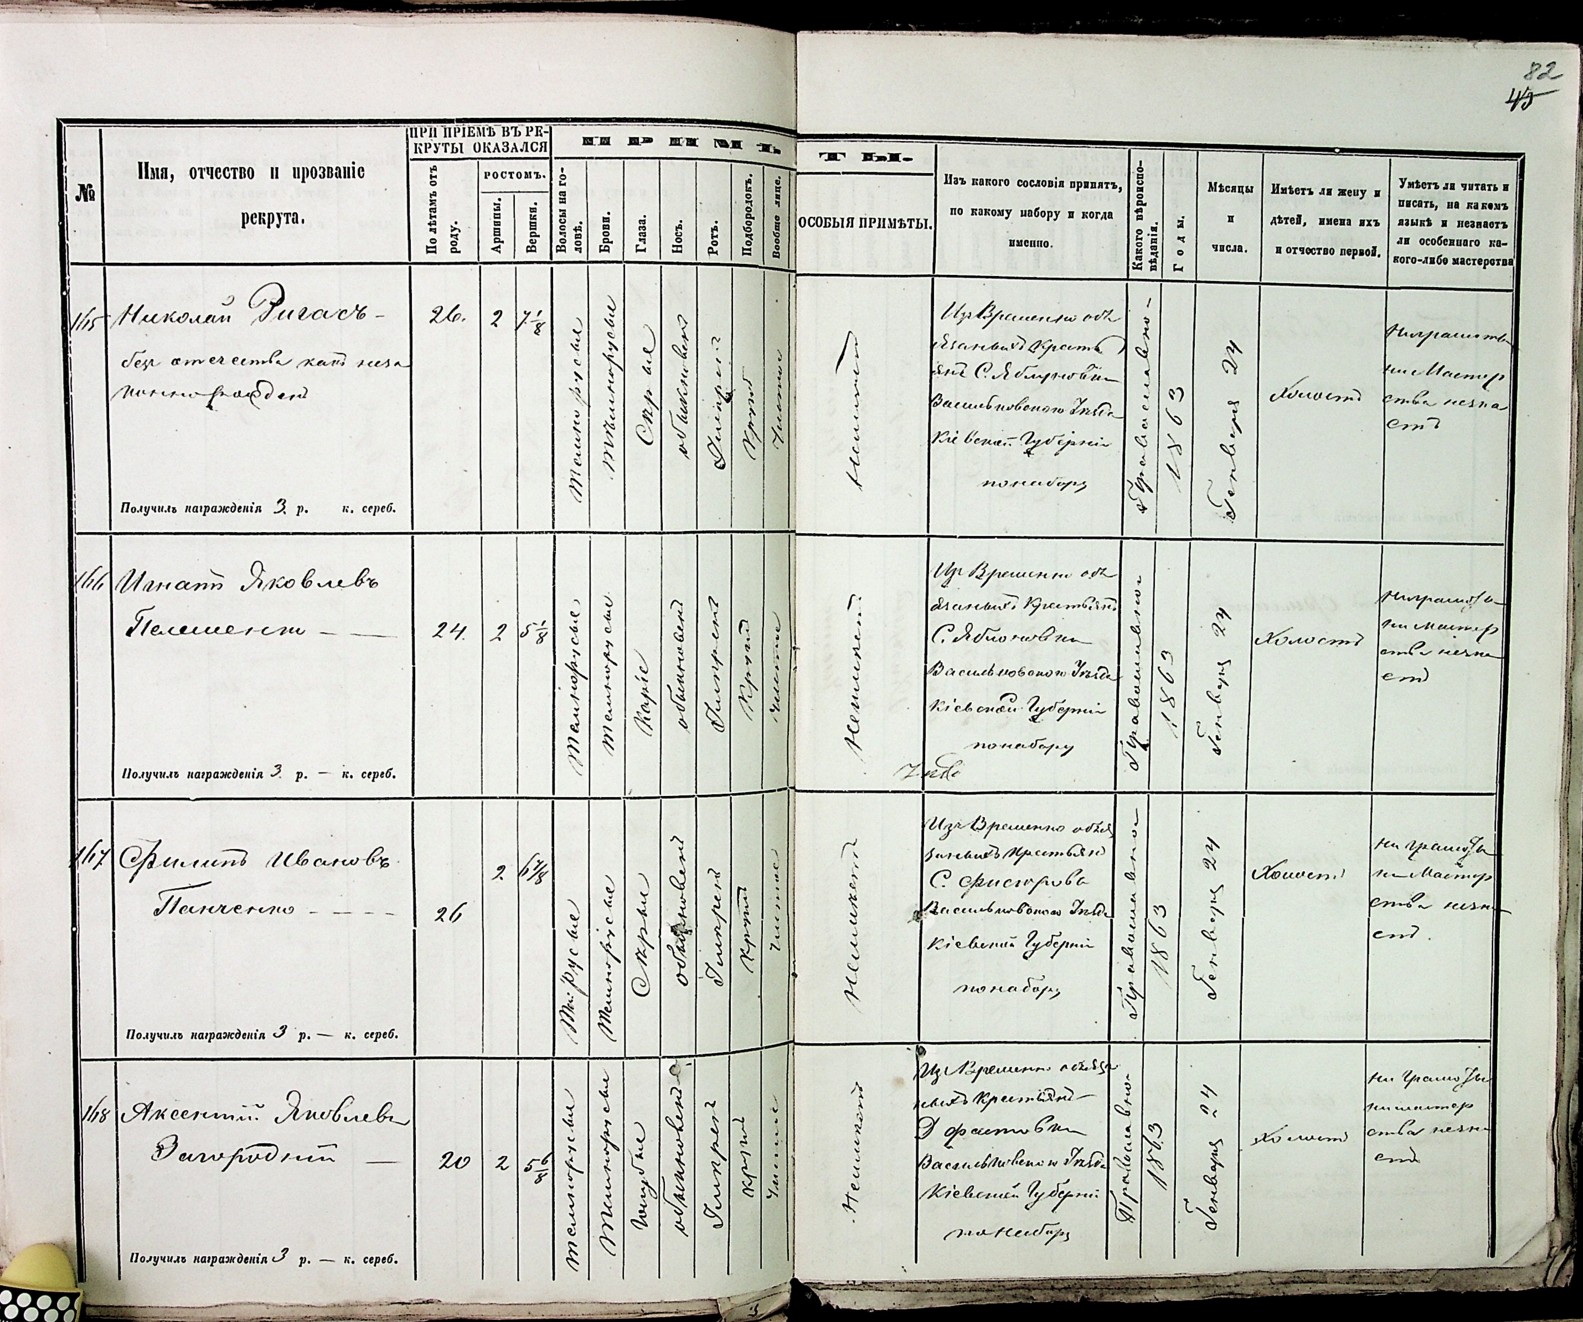 82
45
№
Имя, отчество и прозваніе
рекрута.
ПРИ ПРІЕМѢ ВЪ РЕ-
КРУТЫ ОКАЗАЛСЯ
По лѣтамъ отъ
роду.
РОСТОМЪ.
Аршины.
Вершки.
ПРИМѢТЫ.
Волосы на го-
ловѣ.
Брови.
Глаза.
Носъ.
Ротъ.
Подбородокъ.
Вообще лице.
ОСОБЫЯ ПРИМѢТЫ.
Изъ какого сословія принятъ,
по какому набору и когда
именно.
Какого вѣроиспо-
вѣданія.
Годы.
Мѣсяцы
и
числа.
Имѣетъ ли жену и
дѣтей, имена ихъ
и отчество первой.
Умѣетъ ли читать и
писать, на какомъ
языкѣ и незнаетъ
ли особеннаго ка-
кого-либо мастерства
165
Николай
без отчества какъ неза
коннорожден
Получилъ награжденія 3. р. к. сереб.
26.
2
7 1/8
Темнорусые
Темнорусые
Серые
обыкновен
Умерен
Кругл
Чистое
Неимеет
Из Временно обя
занных Крестья
янъ С. Яблуновки
Васильковского Уезда
Кіевской Губерніи
по набору
Православно-
1863
Генваря 24
Холостъ
Неграмотны
ни Мастер
ства незна
етъ
166
Игнатъ Яковлевъ
Получилъ награжденія 3 р. — к. сереб.
24.
2
5 1/8
Темнорусые
Темнорусые
Каріе
обыкновен
Умерен
Кругл
Чистое
Неимеет
Из Временно обя
занных Крестьянъ
С. Яблоновки
Васильковского Уезда
Кіевской Губерніи
по набору
Православног
1863
Генваря 24
Холостъ
Неграмоты
ни Мастер
ства незна
етъ
167
Филипъ Ивановъ
Панченко
Получилъ награжденія 3 р. — к. сереб.
26
2
6 7/8
Тем: Русые
Темнорусые
Серые
обыкновен
Умерен
Кругл
Чистое
Неимеет
Изъ Временно обяз
занныхъ Крестьянъ
С.
Васильковского Уезда
Кіевской Губерніи
по набору
Православног
1863
Генваря 24
Холостъ
ни Грамоты
ни Мастер
ства незна
етъ.
168
Аксентій Яковлевъ
Загородній
Получилъ награжденія 3 р. — к. сереб.
20
2
5 6/8
Темнорусые
Темнорусые
Голубые
обыкновен
Умерен
Кругл
Чистое
Неимеет
Из Временно обяза
ныхъ Крестьянъ
Васильковского Уезда
Кіевской Губерніи
по набору
Православно-
1863
Генваря 24
Холостъ
ни Грамоты
ни мастер
ства незна
етъ